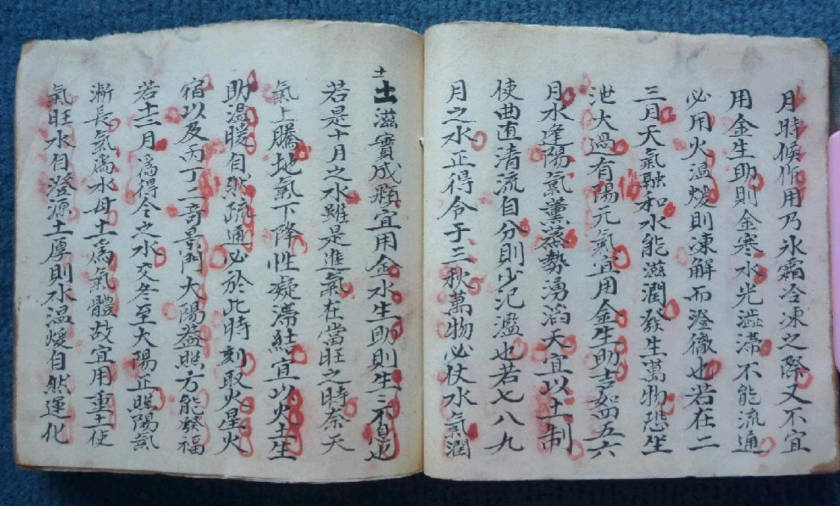 月時候作用乃氷霜冷凍之際又不宜
用金生助則金寒水光澁滯不能流通
必用火温煖則凍解而澄徹也若在二
三月天氣融和水能滋潤發生萬物恐生
泄火過有陽元氣宜用金生助吉如四五六
月水逢陽氣薰蒸勢湧滔天宜以土制
使曲直清流自分則少氾濫也若七八九
月之水正得令于三秋萬物必仗水氣潤
土滋實成顆宜用金水生助則生三不息也
若是十月之水雖是進氣在當旺之時奈天
氣上騰地氣下降性凝滯緃宜以火土生
助温暖自然疏通必於此時刻取火星火
宿以及丙丁二奇景門太陽益照方能發福
若十二月為得令之水交冬至太陽正照陽氣
漸長氣為水母土為氣體故宜用重土使
氣旺水自澄源土厚則水温煖自然運化